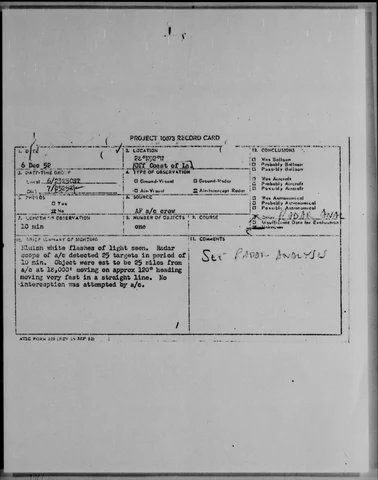 PROJECT 10073 RECORD CARD
1. DATE
6 Dec 52
2. LOCATION
Off Coast of La
12. CONCLUSIONS
□ Was Balloon
□ Probably Balloon
□ Possibly Balloon
□ Was Aircraft
□ Probably Aircraft
□ Possibly Aircraft
□ Was Astronomical
□ Probably Astronomical
□ Possibly Astronomical
Other RADAR ANAL
□ Insufficient Data for Evaluation
□ Unknown
3. DATE-TIME GROUP
Local
GMT
4. TYPE OF OBSERVATION
□ Ground-Visual
□ Ground-Radar
□ Air-Visual
Air-Intercept Radar
5. PHOTOS
□ Yes
No
6. SOURCE
AF a/c crew
7. LENGTH OF OBSERVATION
10 min
8. NUMBER OF OBJECTS
one
9. COURSE
10. BRIEF SUMMARY OF SIGHTING
Bluish white flashes of light seen. Radar
scope of a/c detected 25 targets in period of
10 min. Object were est to be 25 miles from
a/c at 18,000' moving on approx 120° heading
moving very fast in a straight line. No
interception was attempted by a/c.
11. COMMENTS
SEE RADAR ANALYSIS
ATIC FORM 329 (REV 26 SEP 52)